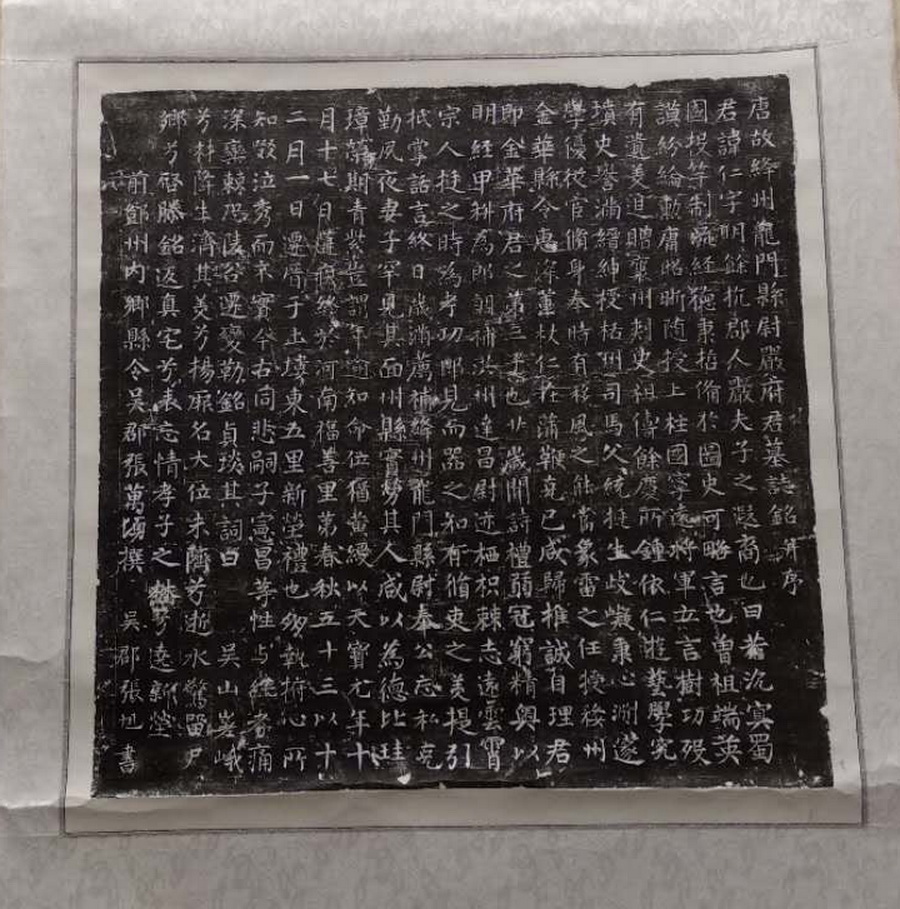 唐故絳州龍門縣尉嚴府君墓誌銘并序
君諱仁字明餘杭郡人嚴夫子之裔也曰若沉冥蜀
國埏等制經德秉哲俻於圖史可略言也曾祖端英
謨紛綸勳庸昭晰随授上柱國寧遠將軍立言樹功歿
有遺美追贈襄州刺史祖儔餘慶所鐘依仁遊藝學究
墳史譽滿縉紳授栝州司馬父統挺生岐嶷秉心淵邃
學優從官脩身奉時有移風之能當象雷之任授婺州
金華縣令惠深董杖仁在蒲鞭堯已成歸推誠自理君
即金華府君之第三子也丱歲聞詩禮弱冠窮精奧以
明經甲科為郎調補洪州達昌尉迹栖枳棘志遠雲霄
宗人挺之時為考功郎見而器之知有脩史之美提引
抵掌話言終日歲滿薦補絳州龍門縣尉奉公忘私克
勤夙夜妻子罕見其面州縣賓勞其人咸以為德比珪
璋榮期青紫豈謂年逾知命位猶黃綬以天寶元年十
月十七日寢疾終於河南福善里第春秋五十三以十
二月一日遷窆于土塿東五里新塋禮也孰撫心所
知歎泣秀而不實今古同悲嗣子憲昌等性與純孝痛
深欒棘恐陵谷遷變勒銘貞琰其詞曰 吳山峩峨
兮林降生濟其美兮楊厥名大位未躋兮逝水驚留尸
鄉兮啓滕銘返真宅兮長忘情孝子之兮遶新塋
前鄧州內鄉縣令吳郡張萬頃撰 吳郡張旭書